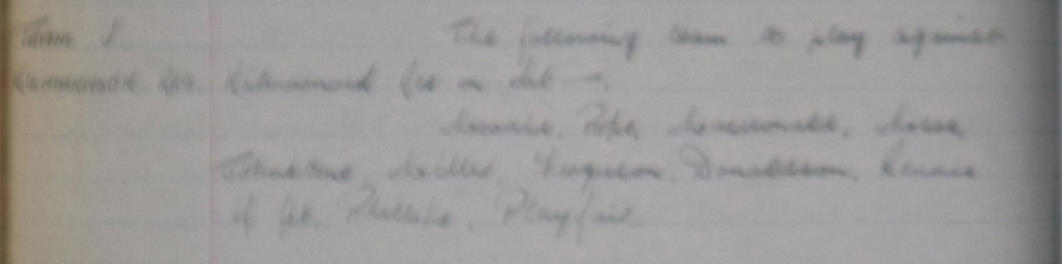 Team V. The following team to play against
Kilmarnock Res. Kilmarnock Res on Sat —.
Pope, Macdonald,
Johnstone, Miller, Ferguson, Donaldson, Rennie
if fit, Phillips, Playfair.